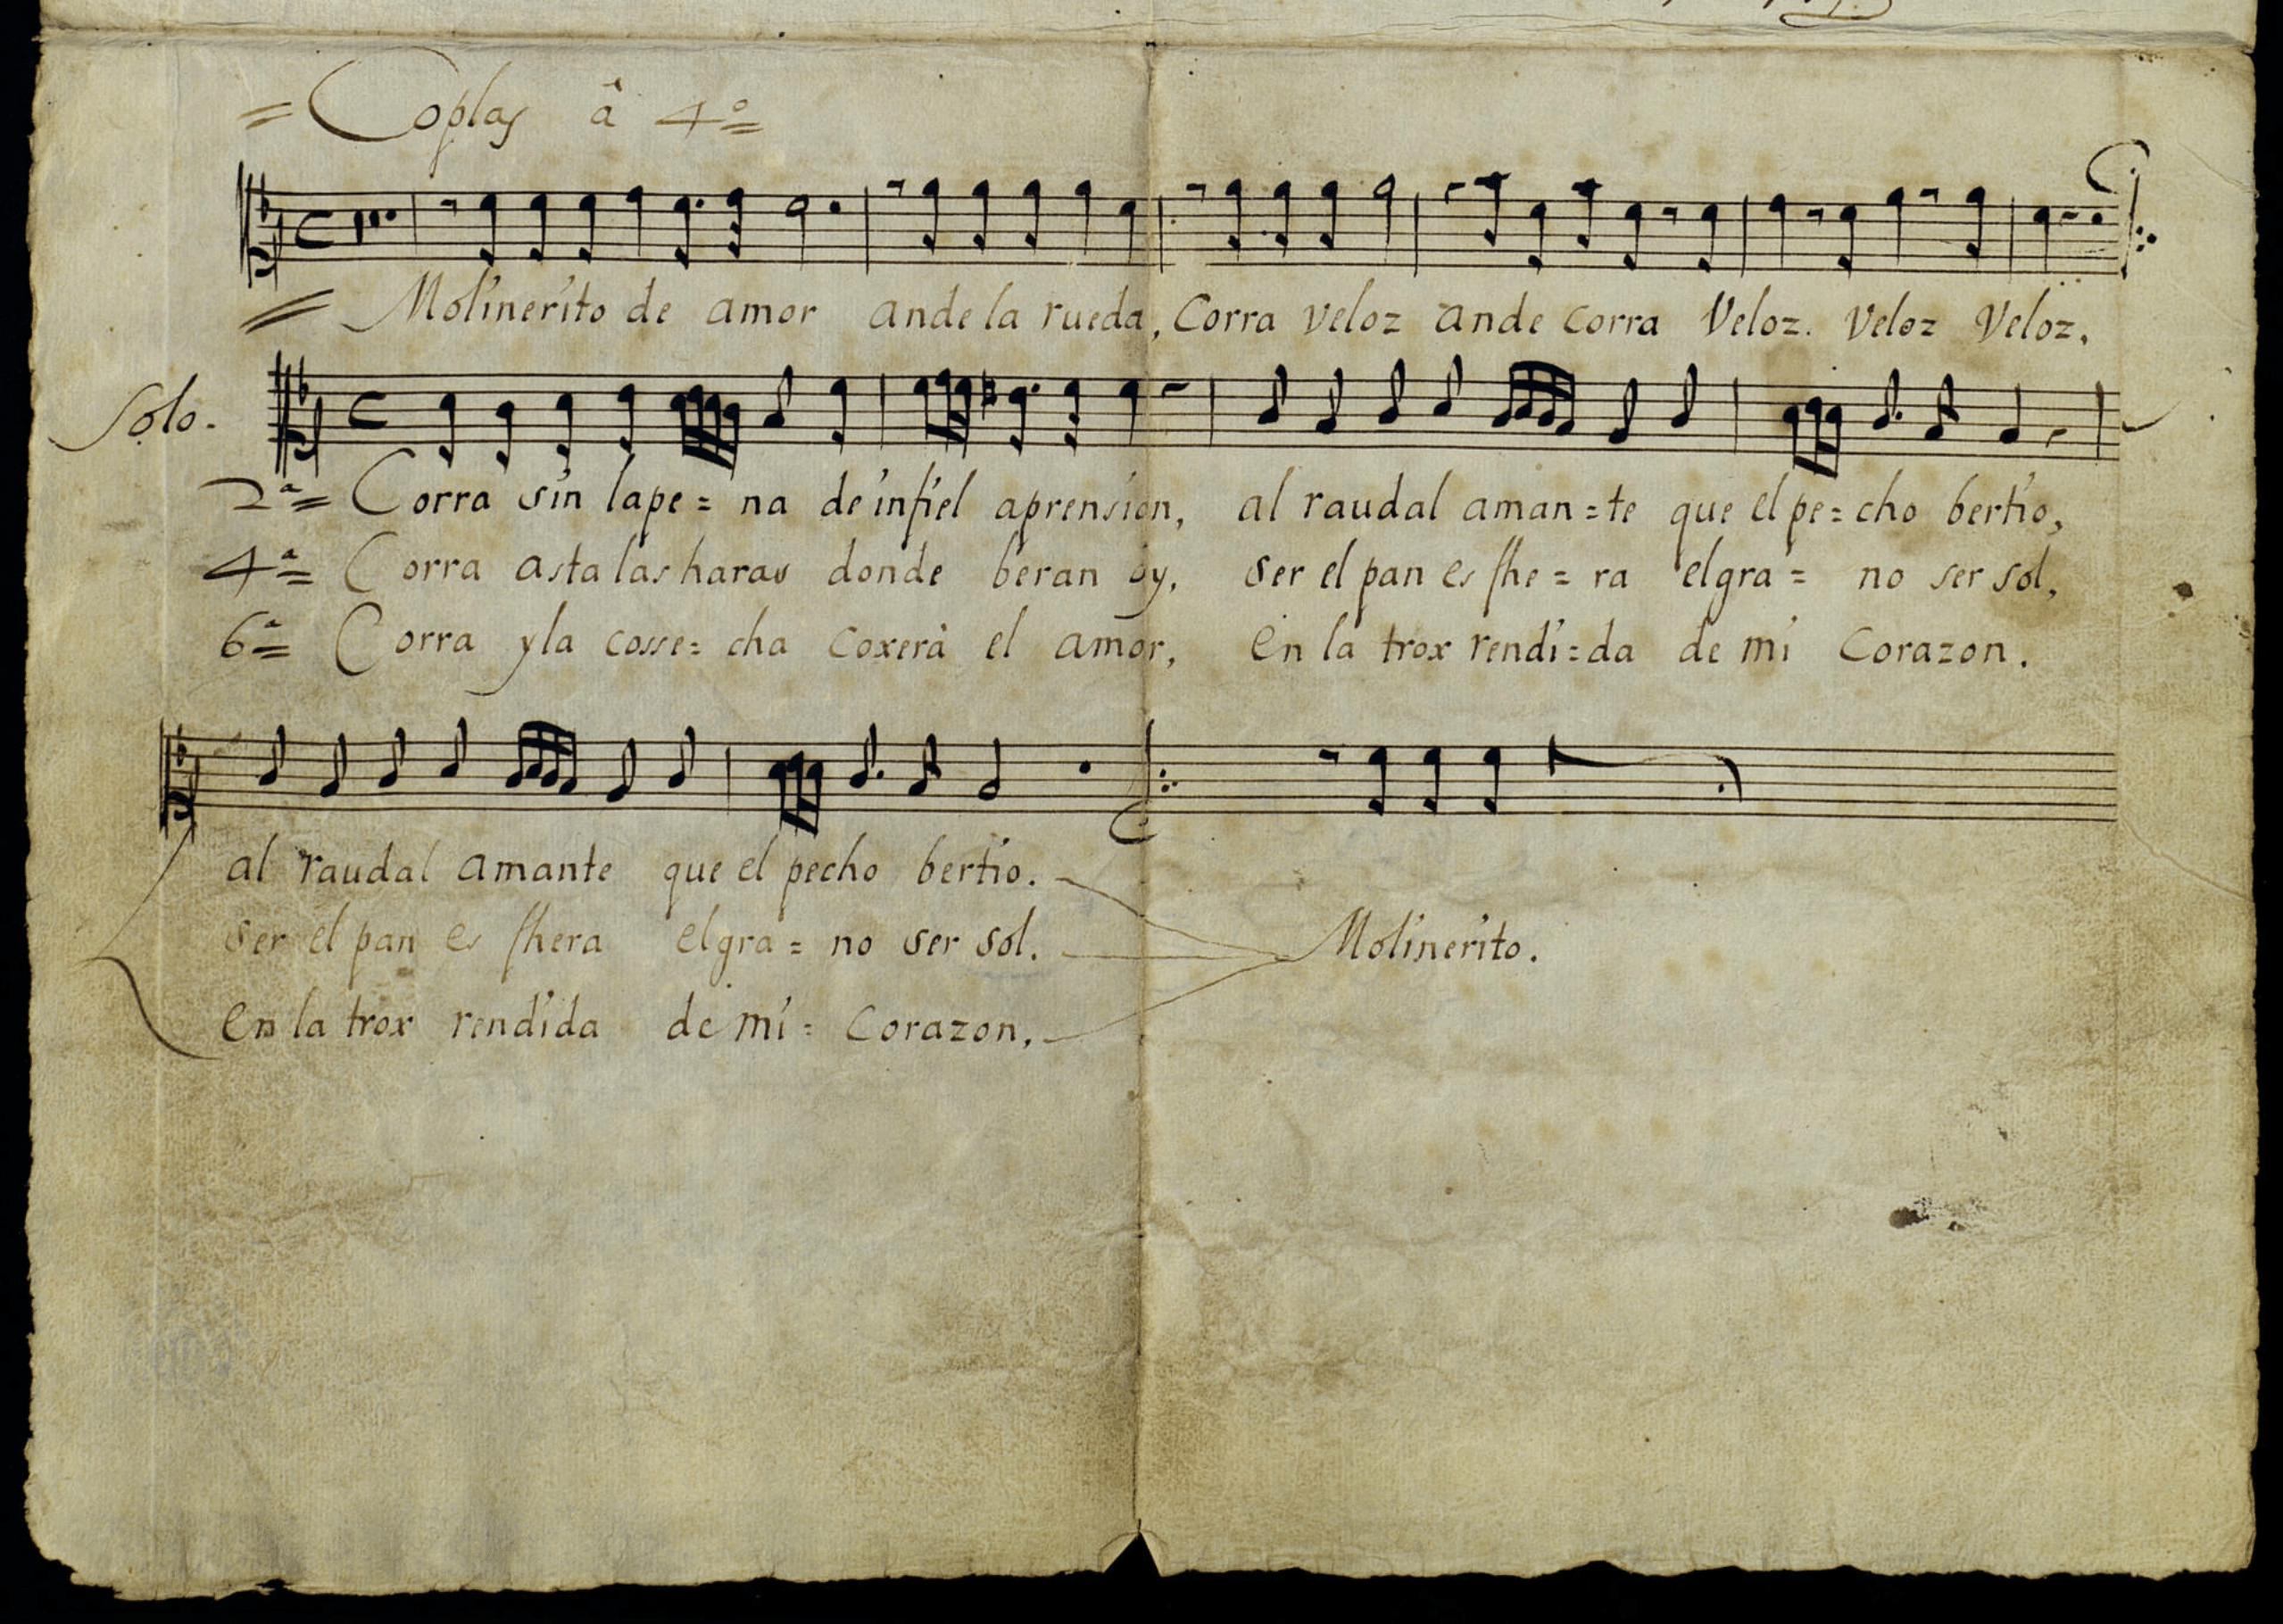 = Coplas â 4º =
Molinerito de amor ande la rueda, Corra veloz ande corra Veloz. Veloz Veloz.
Solo.
2ª = Corra sin la pe = na de infiel aprension, al raudal aman = te que el pe = cho bertio,
4ª = Corra asta las haras donde beran oy, ser el pan es fhe = ra el gra = no ser sol,
6ª = Corra y la cosse = cha coxerà el amor, en la trox rendi = da de mi Corazon.
al raudal amante que el pecho bertio.
ser el pan es fhera el gra = no ser sol. Molinerito.
en la trox rendida de mi = Corazon.